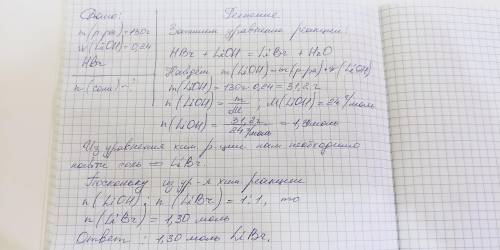 Дано:
m(р-ра)=130г
w(LiOH)=0,24
HBr
n(соли)-?
Решение
Запишем уравнение реакции:
HBr + LiOH = LiBr + H₂O
Найдем m(LiOH)=m(р-ра)*w(LiOH)
m(LiOH)=130г·0,24=31,2г
n(LiOH)=m/M; M(LiOH)=24г/моль
n(LiOH)=31,2г/24г/моль=1,3моль
Из уравнения хим. р-ции нам необходимо
найти соль ⇒ LiBr
Поскольку из ур-я хим. реакции
n(LiOH):n(LiBr)=1:1, то
n(LiBr)=1,30 моль
Ответ: 1,30 моль LiBr.